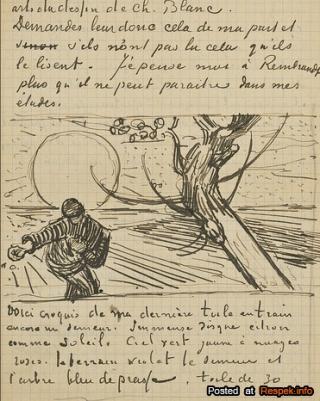 arts du dessin de Ch. Blanc.
Demandez leur donc cela de ma part et
s'ils n'ont pas lu cela qu'ils
le lisent. Je pense moi à Rembrandt
plus qu'il ne peut paraître dans mes
études.
Voici croquis de ma dernière toile en train
encore un semeur. Immense disque citron
comme soleil. Ciel vert jaune à nuages
roses. le terrain violet le semeur et
l'arbre bleu de prusse. toile de 30
Posted at Respek.info